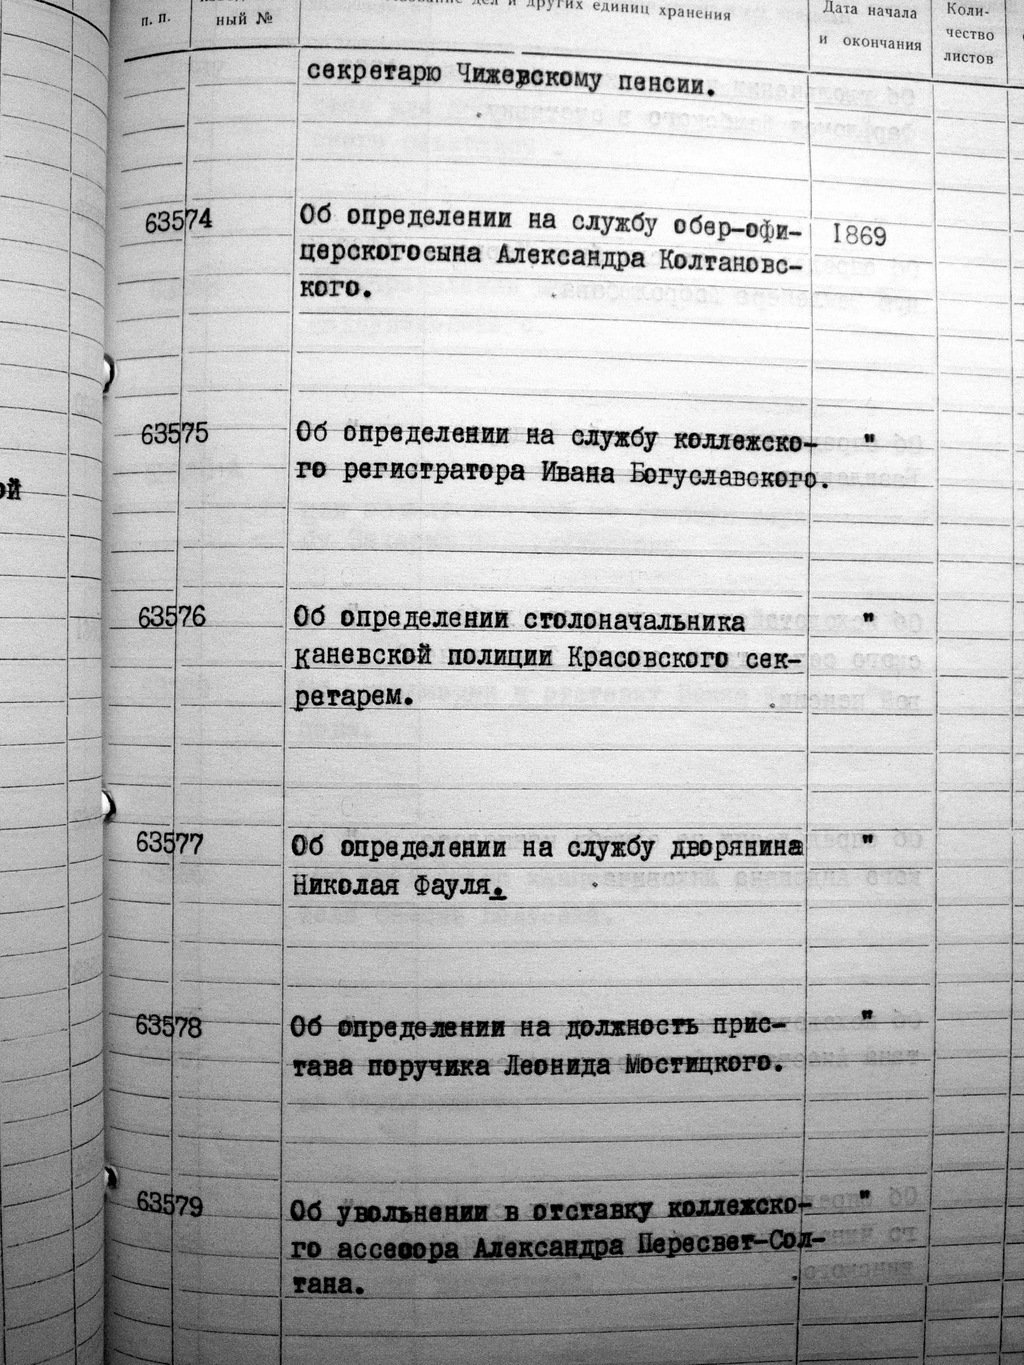 п. п.
ный №
дел и других единиц хранения
Дата начала
и окончания
Коли-
чество
листов
секретарю Чижевскому пенсии.
63574 Об определении на службу обер-офи- 1869
церскогосына Александра Колтановс-
кого.
63575 Об определении на службу коллежско- "
го регистратора Ивана Богуславского.
ой
63576 Об определении столоначальника "
каневской полиции Красовского сек-
ретарем.
63577 Об определении на службу дворянина "
Николая Фауля.
63578 Об определении на должность прис- "
тава поручика Леонида Мостицкого.
63579 Об увольнении в отставку коллежско- "
го ассесора Александра Пересвет-Сол-
тана.